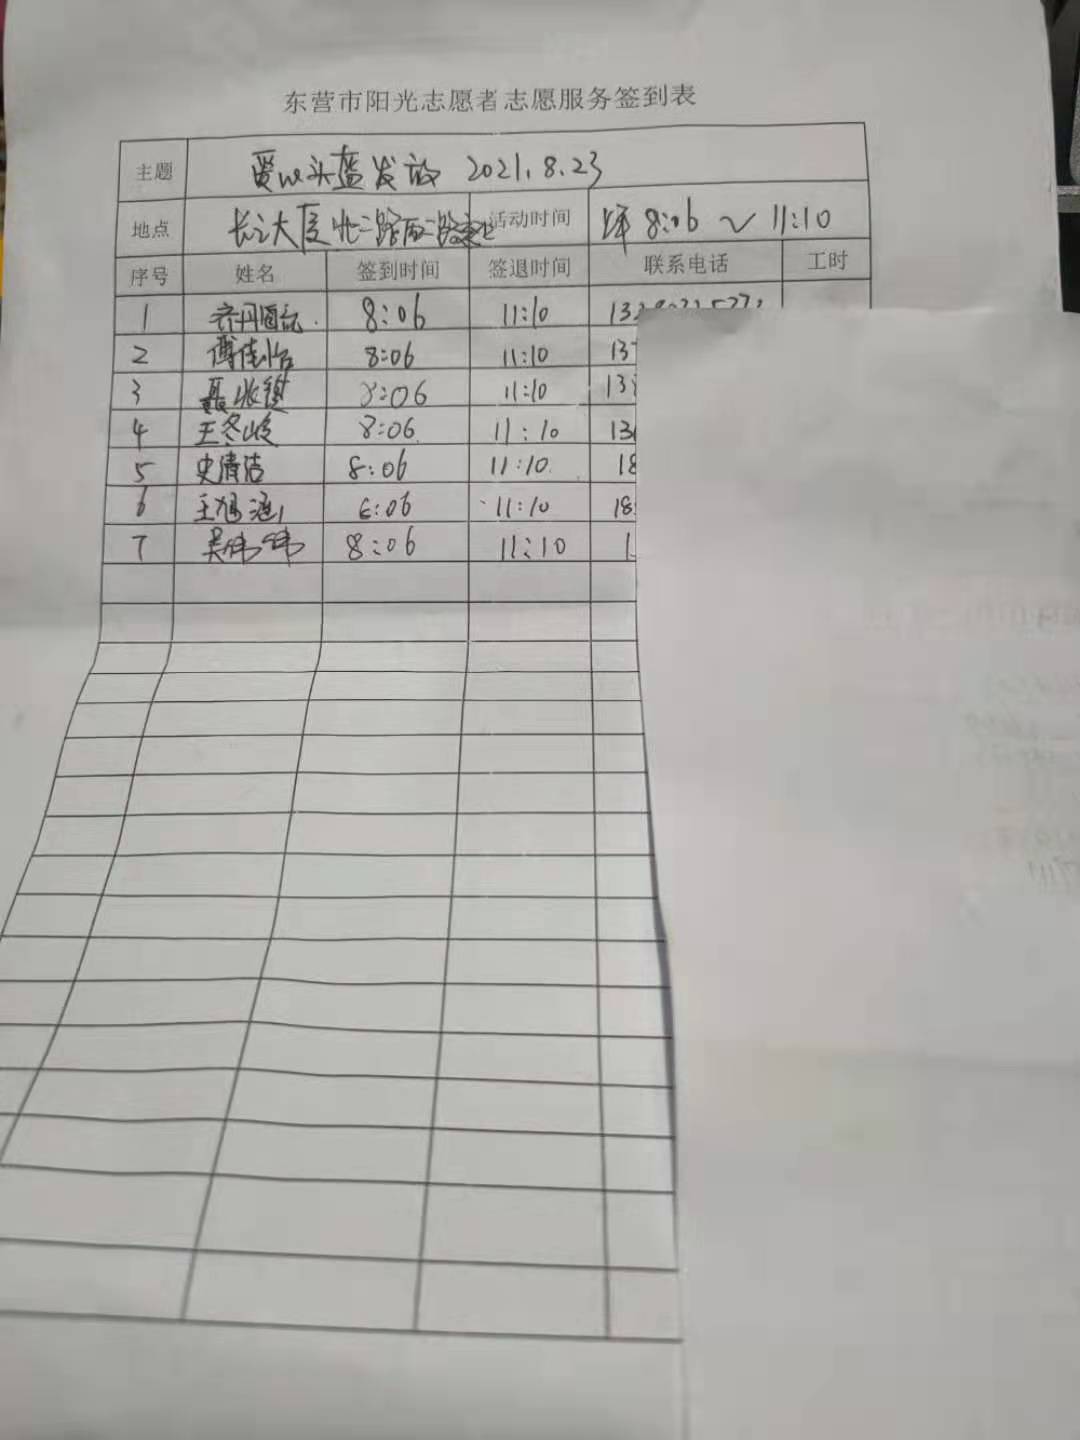 东营市阳光志愿者志愿服务签到表
主题 爱心头盔发放 2021.8.23
地点 大厦 活动时间 8:06 ~ 11:10
序号 姓名 签到时间 签退时间 联系电话 工时
1 8:06 11:10
2 傅佳怡 8:06 11:10 13
3 聂 8:06 11:10 13
4 王冬 8:06 11:10 13
5 史清洁 8:06 11:10 18
6 王旭涵 6:06 11:10 18
7 吴伟伟 8:06 11:10 1